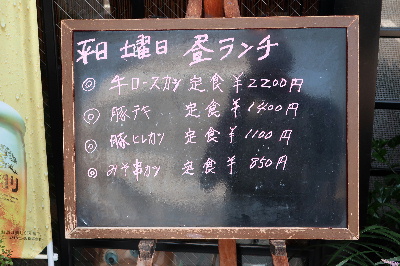 平日 土曜日 昼ランチ
◎ 牛ロースカツ 定食 ¥2200円
◎ 豚テキ 定食 ¥1400円
◎ 豚ヒレカツ 定食 ¥1100円
◎ みそ串カツ 定食 ¥850円